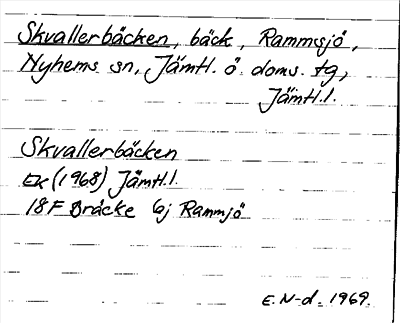 Skvallerbäcken, bäck, Rammsjö,
Nyhems sn, Jämtl. ö. doms. tg,
Jämtl.l.
Skvallerbäcken
EK (1968) Jämtl.l.
18F Bräcke 6j Rammsjö
E.N-d. 1969.